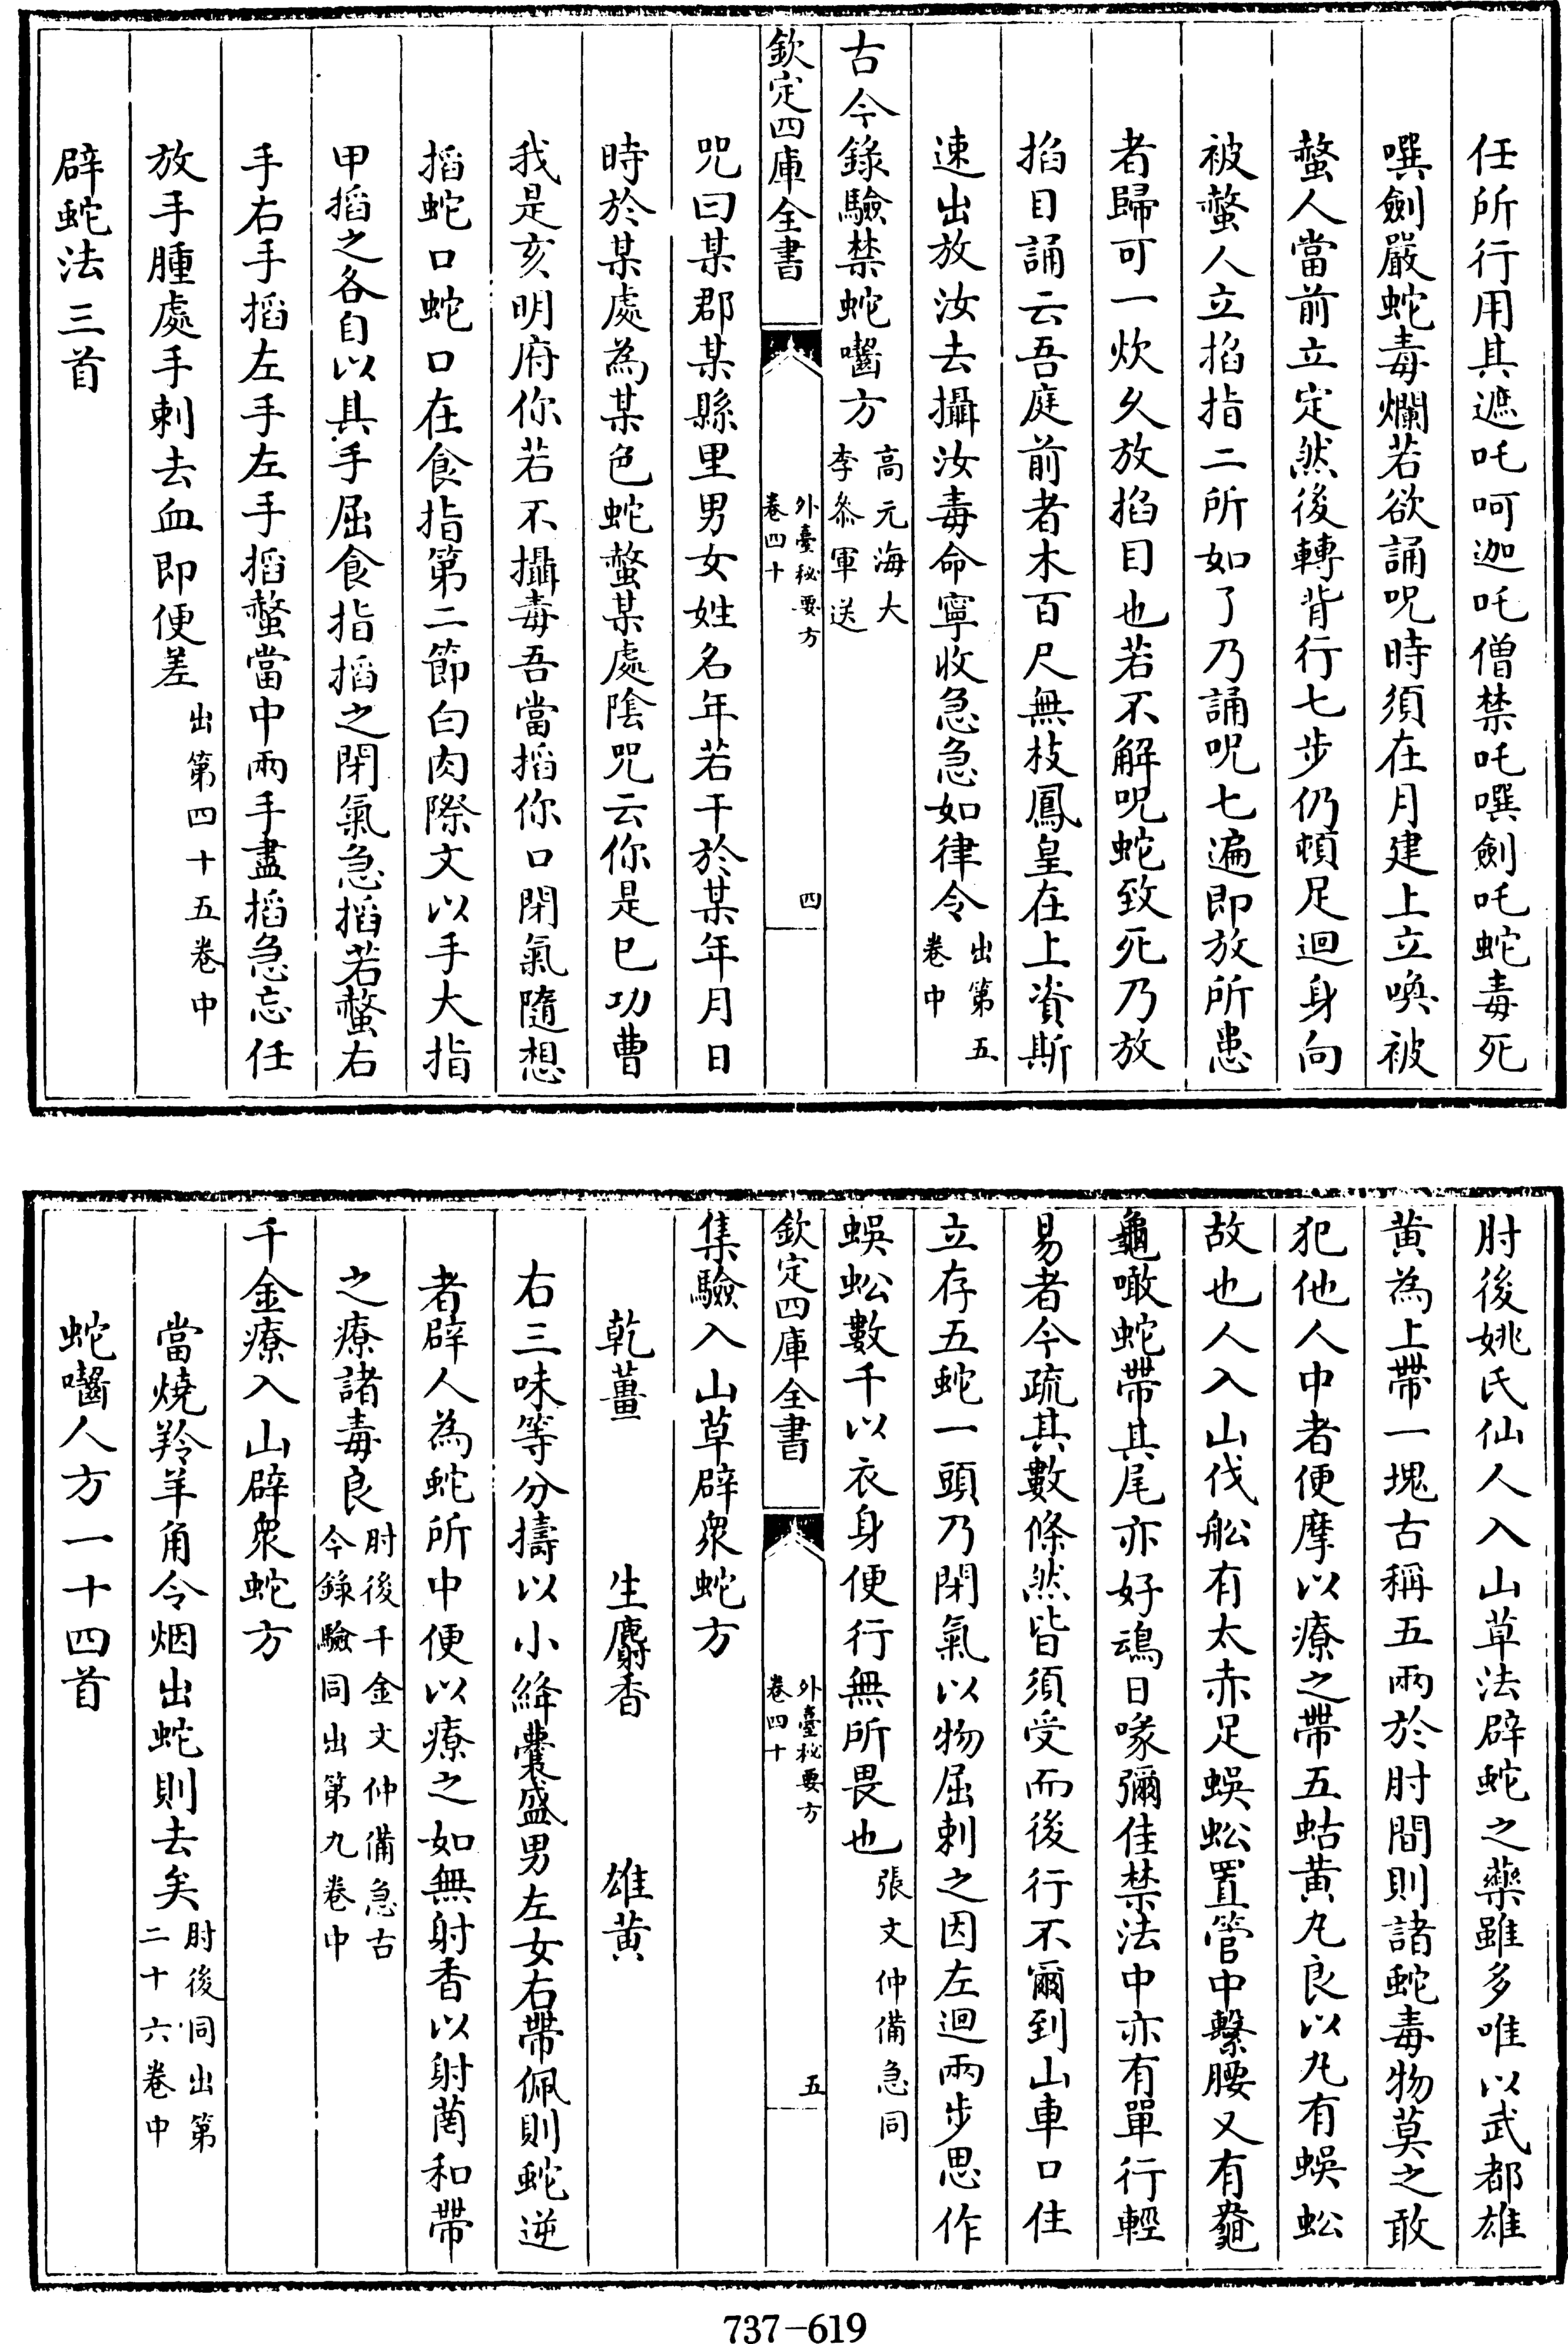 任所行用其遮吒呵迦吒僧禁吒㗻劍吒蛇毒死
㗻劍嚴蛇毒爛若欲誦呪時須在月建上立喚被
螫人當前立定然後轉背行七步仍頓足迴身向
被螫人立掐指二所如了乃誦呪七遍即放所患
者歸可一炊久放掐目也若不解呪蛇致死乃放
掐目誦云吾庭前者木百尺無枝鳳皇在上資斯
速出放汝去攝汝毒命寧收急急如律令出第五
卷中
古今錄驗禁蛇嚙方高元海大
李叅軍送
欽定四庫全書
外臺秘要方
卷四十
四
咒曰某郡某縣里男女姓名年若干於某年月日
時於某處為某色蛇螫某處陰咒云你是巳功曹
我是亥明府你若不攝毒吾當搯你口閉氣隨想
搯蛇口蛇口在食指第二節白肉際文以手大指
甲搯之各自以具手屈食指搯之閉氣急搯若螫右
手右手搯左手左手搯螫當中兩手盡搯急忘任
放手腫處手刺去血即便差出第四十五卷中
辟蛇法三首
肘後姚氏仙人入山草法辟蛇之藥雖多唯以武都雄
黃為上帶一塊古稱五兩於肘間則諸蛇毒物莫之敢
犯他人中者便摩以療之帶五蛄黃丸良以丸有蜈蚣
故也人入山伐船有太赤足蜈蚣置管中繫腰又有鼊
龜噉蛇帶其尾亦好鴆日喙彌佳禁法中亦有單行輕
易者今疏其數條然皆須受而後行不爾到山車口住
立存五蛇一頭乃閉氣以物屈刺之因左迴兩步思作
蜈蚣數千以衣身便行無所畏也張文仲備急同
欽定四庫全書
外臺秘要方
卷四十
五
集驗入山草辟衆蛇方
乾薑　生麝香　雄黃
右三味等分擣以小絳囊盛男左女右帶佩則蛇逆
者辟人為蛇所中便以療之如無射香以射䓘和帶
之療諸毒良肘後千金文仲備急古
今錄驗同出第九卷中
千金療入山辟衆蛇方
當燒羚羊角令烟出蛇則去矣肘後同出第
二十六卷中
蛇嚙人方一十四首
737-619